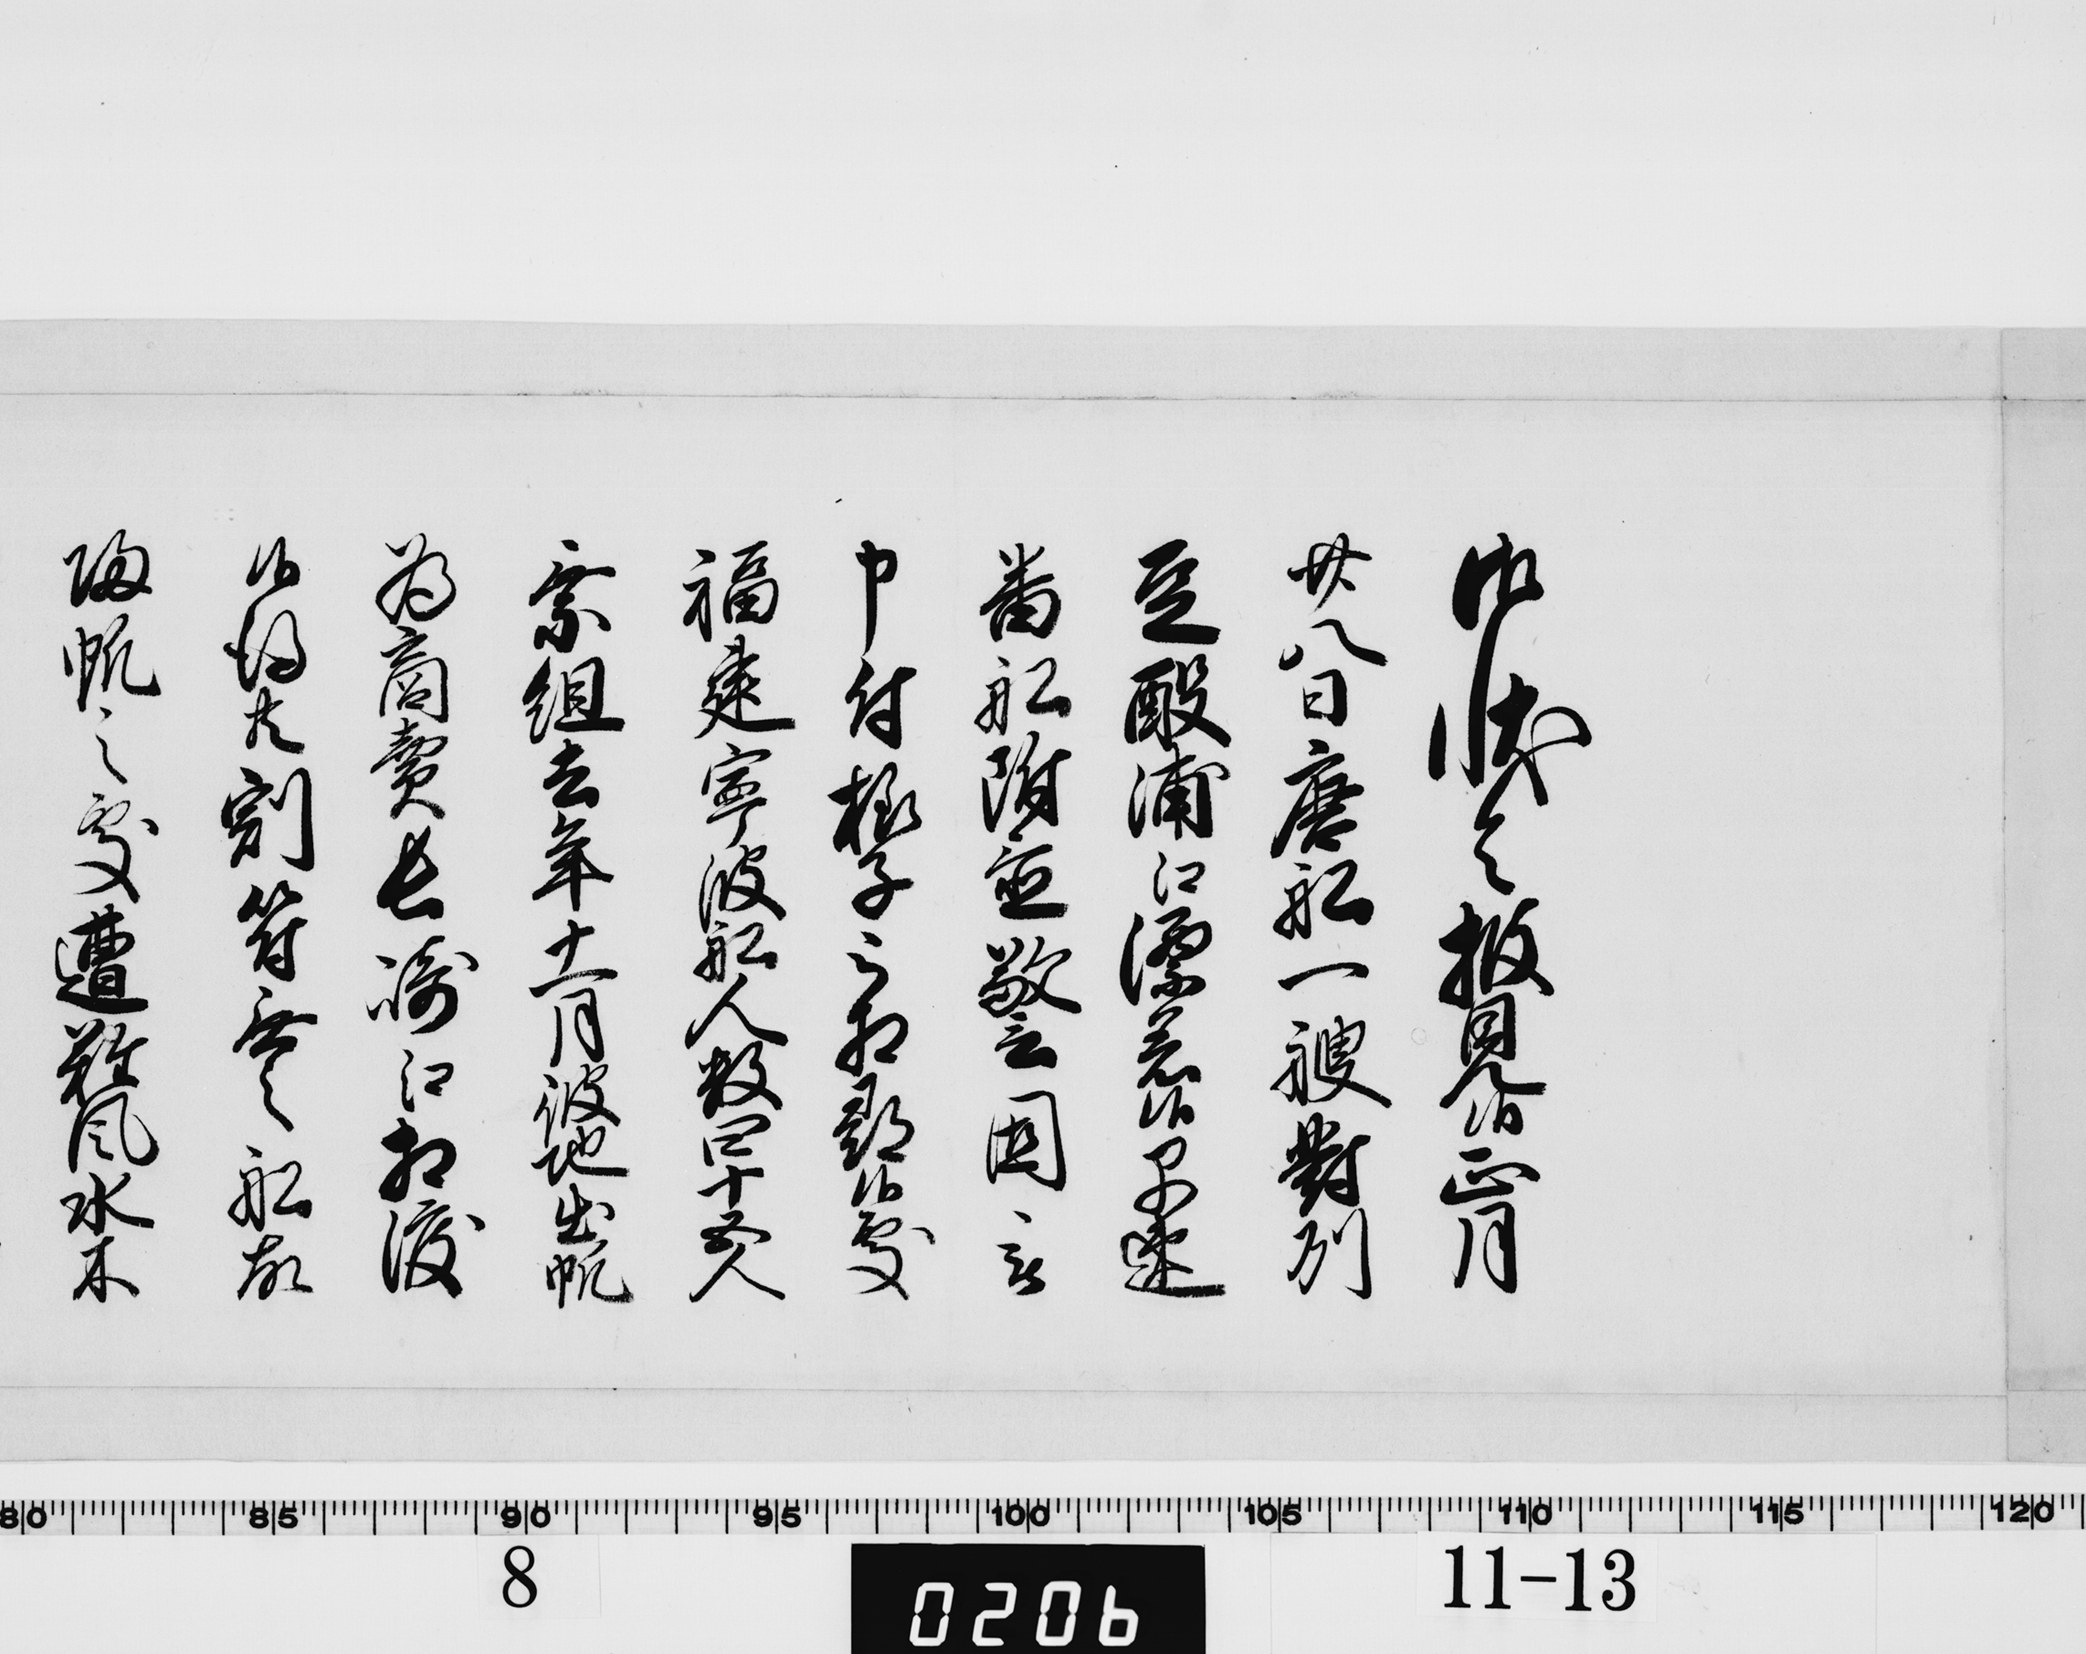 御状令披見候正月
廿八日唐船一艘對州
豆酘浦江漂着候早速
番船附並警固言
申付様子之相尋候處
福建寧波船人数四十五人
乗組去年十一月彼地出帆
為商賣長崎江相渡
候得共割符無之船故
帰帆之處遭難風水木
80 85 90 95 100 105 110 115 120
8
0206
11-13